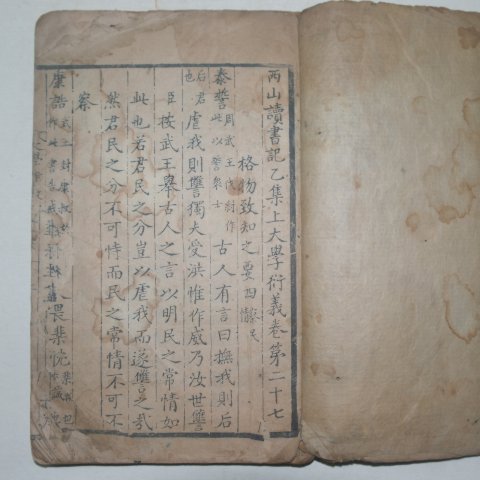 西山讀書記乙集上大學衍義卷第二十七
格物致知之要四
泰誓周武王伐紂作此以誓衆士古人有言曰撫我則后
后君也虐我則讐獨夫受洪惟作威乃汝世讐
臣按武王擧古人之言以明民之常情如
此也若君民之分豈以虐我而遂讐之哉
然君民之分不可恃而民之常情不可不
察
康誥武王封康叔於 此書告戒 畏棐忱